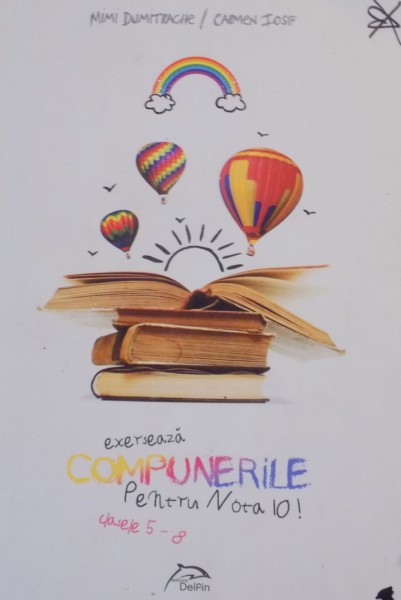 MIMI DUMITRACHE / CARMEN IOSIF
exersează
COMPUNERiLE
Pentru Nota 10!
clasele 5 - 8
DelFin